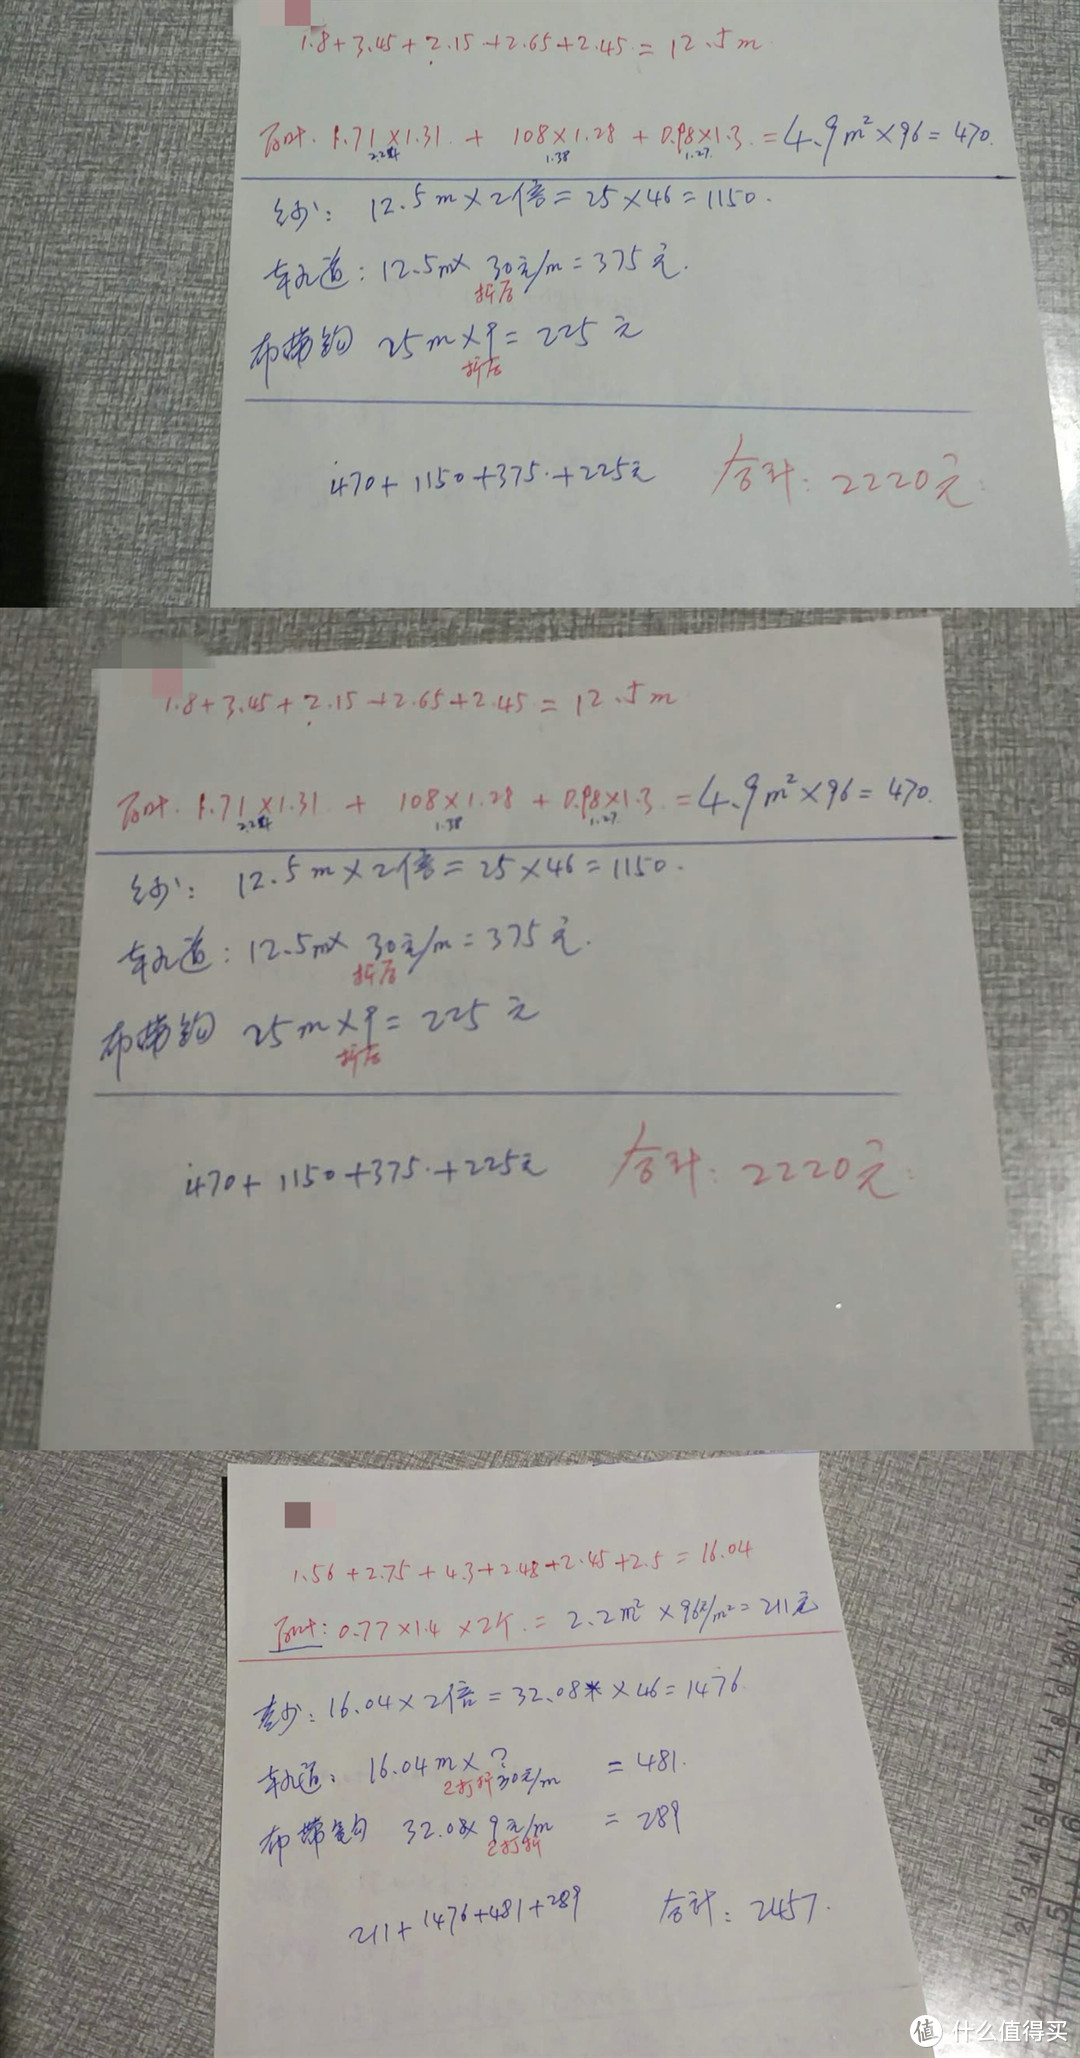 1.8+3.45+2.15+2.65+2.45=12.5m
百叶.1.71×1.31.+108×1.28+0.98×1.3=4.9m²×96=470.
1.38 1.27
纱:12.5m×2倍=25×46=1150.
轨道:12.5m×30元/m=375元.
折后
布带钩 25m×9=225元
折后
470+1150+375.+225元 合计:2220元
1.8+3.45+2.15+2.65+2.45=12.5m
百叶.1.71×1.31+108×1.28+0.98×1.3=4.9m²×96=470.
1.38 1.27
纱:12.5m×2倍=25×46=1150.
轨道:12.5m×30元/m=375元.
折后
布带钩 25m×9=225元
折后
470+1150+375.+225元 合计:2220元
1.56+2.75+4.3+2.48+2.45+2.5=16.04
百叶:0.77×1.4×2个.=2.2m²×96元/m²=211元
纱:16.04×2倍=32.08米×46=1476
轨道:16.04m×?=481.
已打折30元/m
布带钩 32.08×9元/m=289
已打折
211+1476+481+289 合计:2457.
值 什么值得买